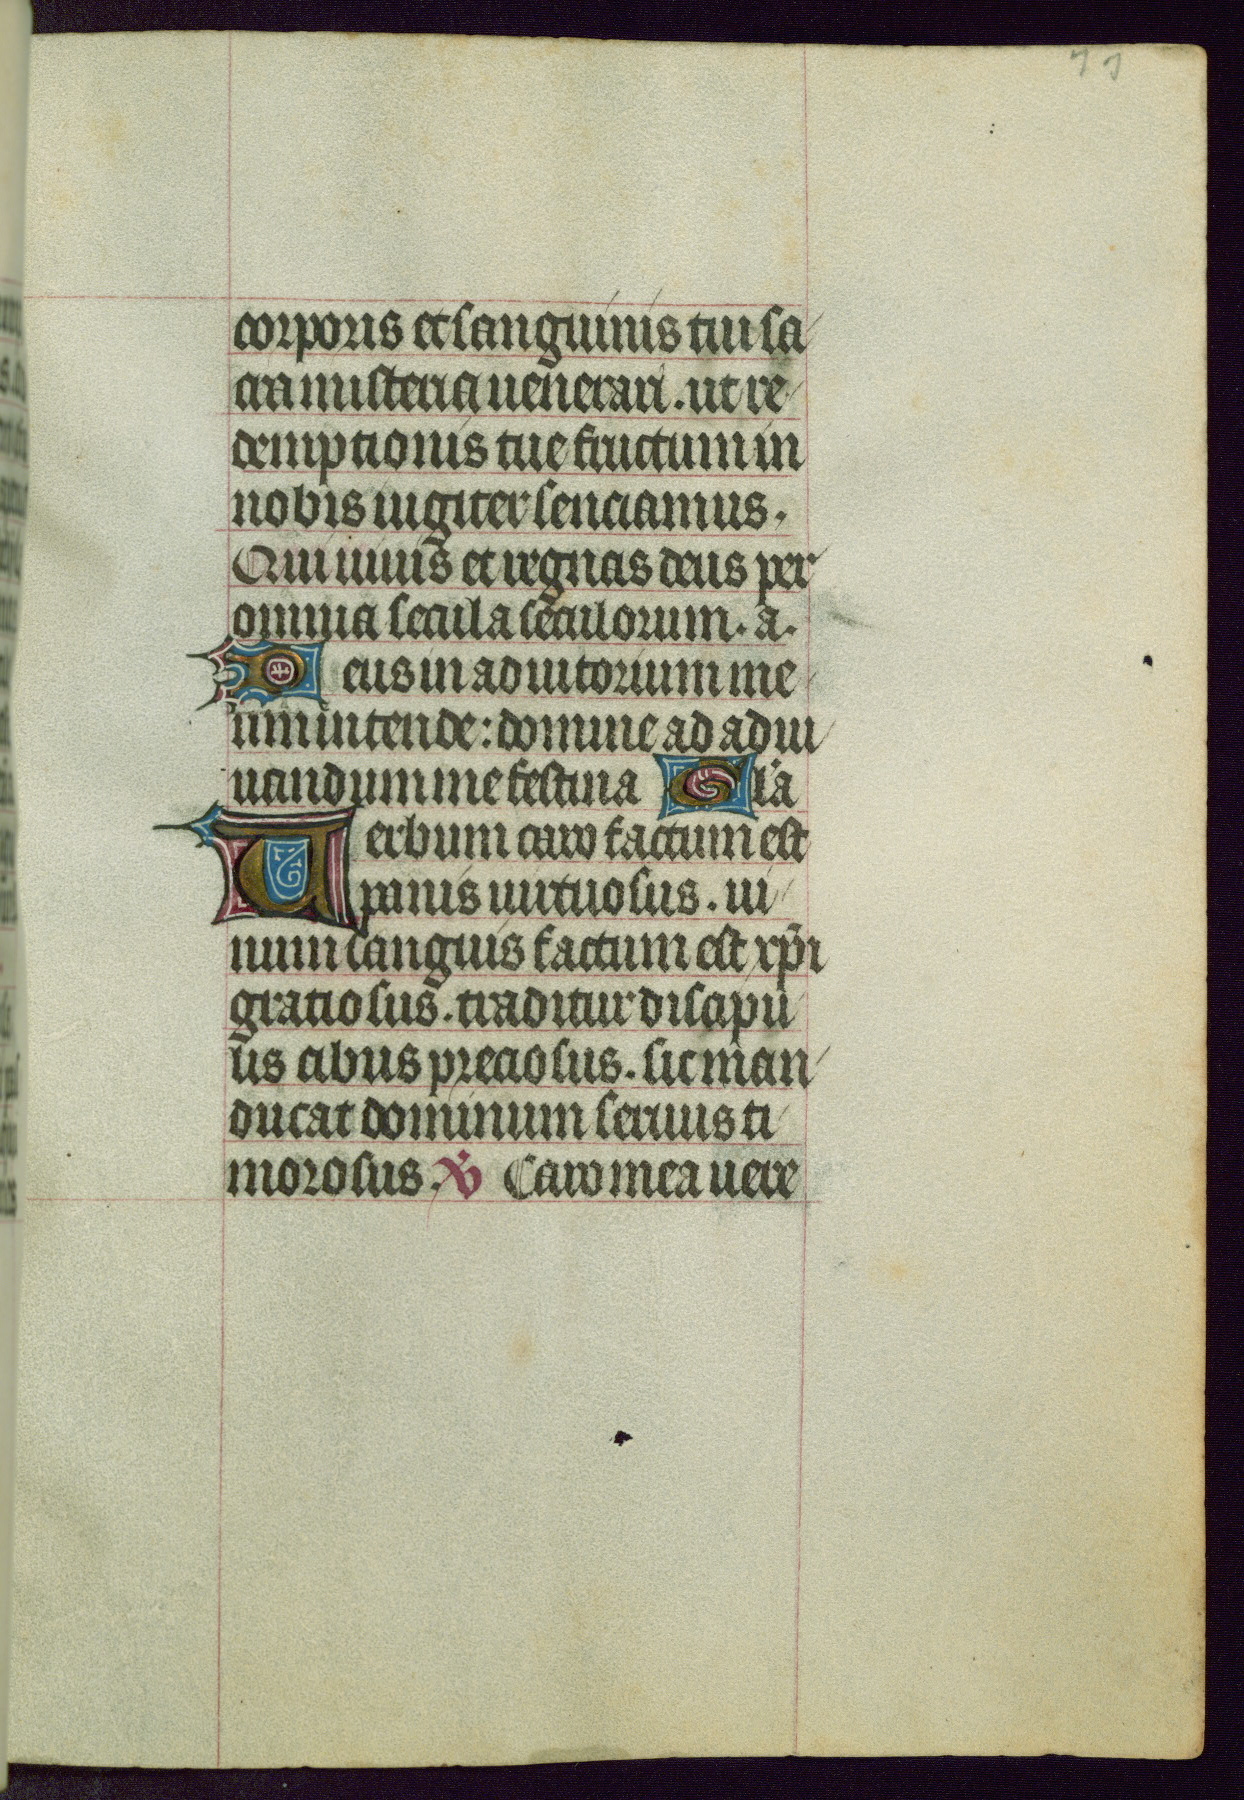 77
corporis et sanguinis tui sa
cra misteria venerari. ut re
demptionis tue fructum in
nobis iugiter senciamus.
Qui uiuis et regnas deus per
omnia secula seculorum. a.
Deus in adiutorium me
um intende: domine ad adiu
uandum me festina Gl'a
Verbum caro factum est
panis uirtuosus. ui
num sanguis factum est xp̄i
gratiosus. traditur discipu
lis cibus preciosus. sic man
ducat dominum seruus ti
morosus. V̇ Caro mea uere